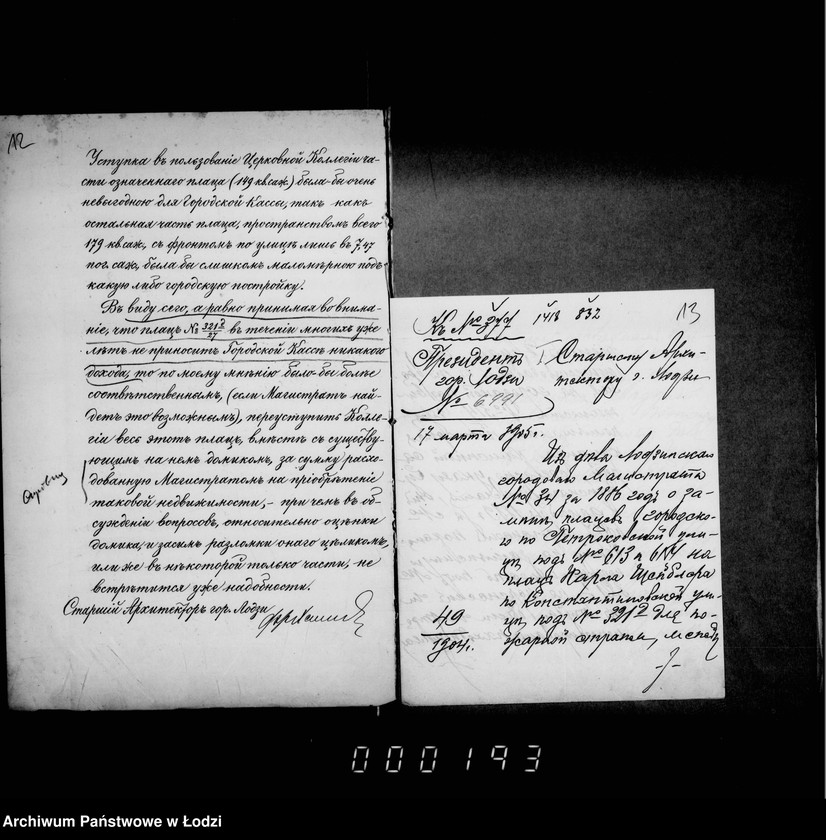 12
Уступка въ пользованіе Церковной Коллегіи ча-
сти означеннаго плаца (149 кв.саж.) была-бы очень
невыгодною для Городской Кассы, такъ какъ
остальная часть плаца, пространствомъ всего
179 кв.саж., съ фронтомъ по улицѣ лишь въ 7,47
пог. саж., была бы слишкомъ маломѣрною подъ
какую либо городскую постройку.
Въ виду сего, а равно принимая во внима-
ніе, что плацъ № 321 2/27 въ теченіи многихъ уже
лѣтъ не приноситъ Городской Кассѣ никакого
дохода, то по моему мнѣнію было-бы болѣе
соотвѣтственнымъ, (если Магистратъ най-
детъ это возможнымъ), переуступить Колле-
гіи весь этотъ плацъ, вмѣстѣ съ существу-
ющимъ на немъ домикомъ, за сумму расхо-
дованную Магистратомъ на пріобрѣтеніе
таковой недвижимости, – при чемъ въ об-
сужденіи вопросовъ, относительно оцѣнки
домика, и засимъ разломки онаго цѣликомъ,
или же въ нѣкоторой только части, – не
встрѣтится уже надобности.
Старшій Архитекторъ гор. Лодзи
13
Къ № 377 1418 832
Президентъ
гор. Лодзи
№ 6991
17 марта 1905 г.
49
1904 г.
Старшему Архи-
тектору г. Лодзи
Изъ дѣла Лодзинскаго
городового Магистрата
№ 34 за 1886 годъ о за-
мѣнѣ плацовъ городско-
го по Петроковской ули-
цѣ подъ № 613 и 614 на
плацъ Карла Шейблера
по Константиновской ули-
цѣ подъ № 321 2 для по-
жарной стражи, между
000193
Archiwum Państwowe w Łodzi